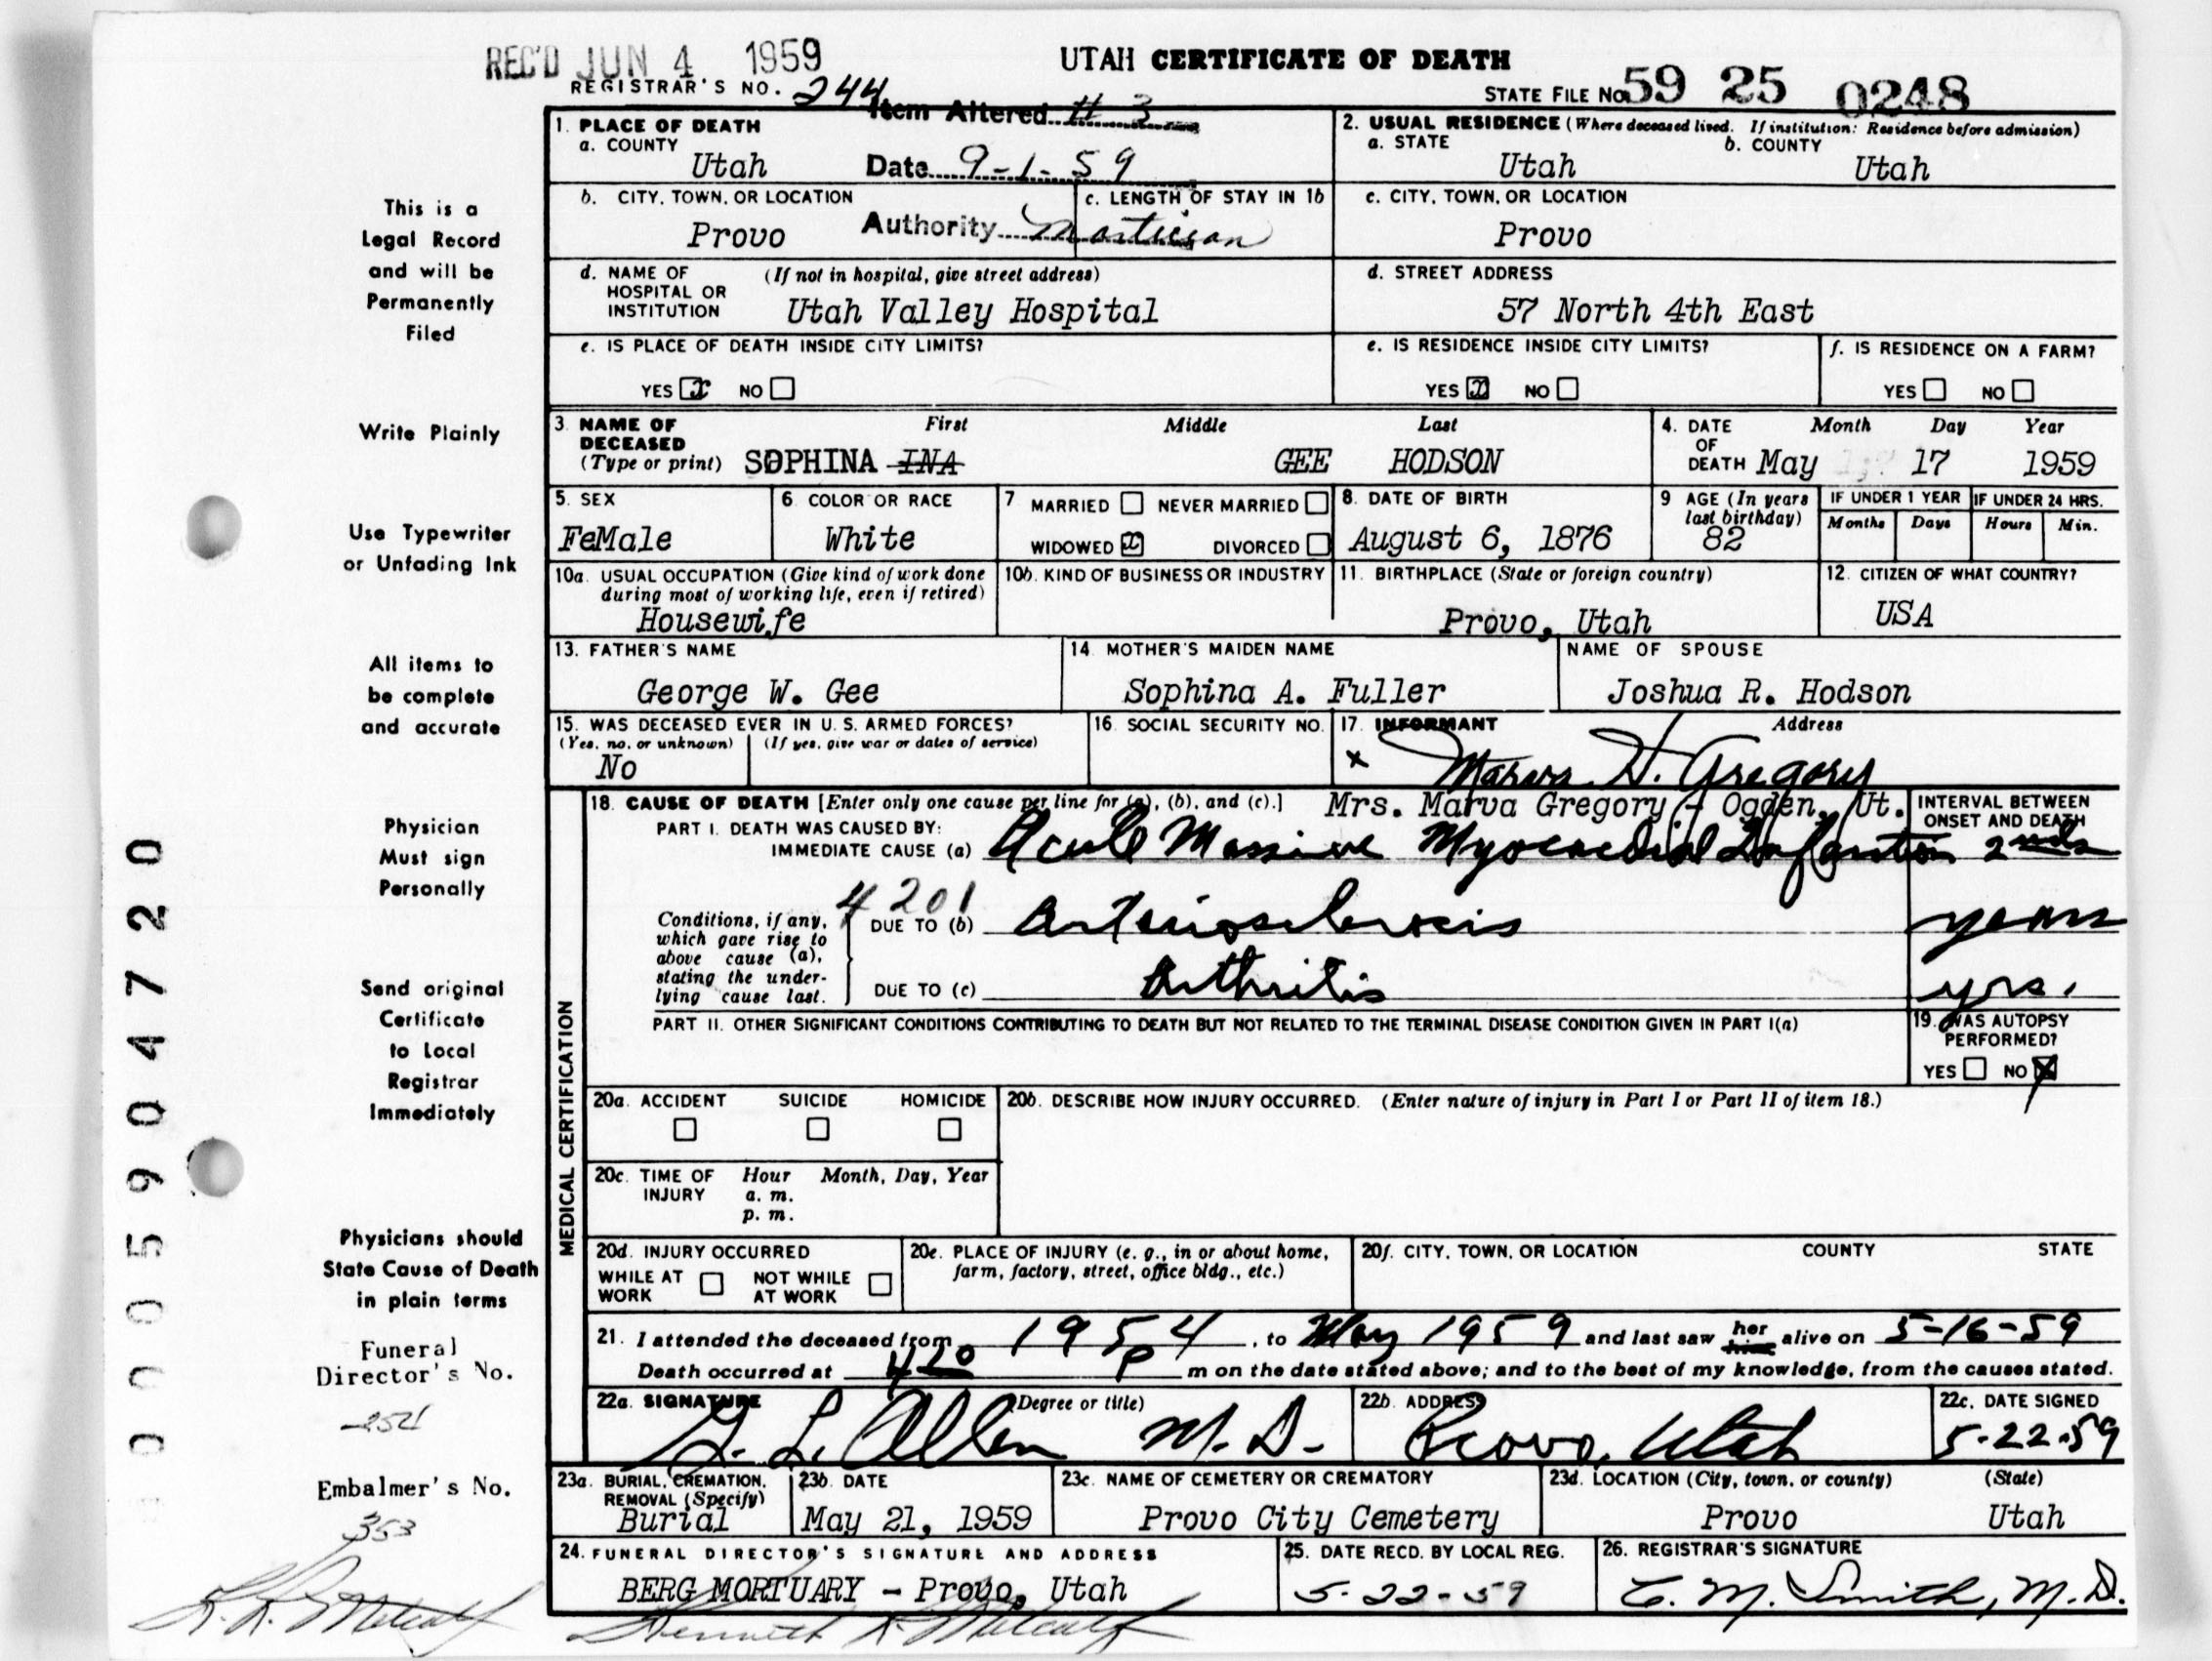 REC'D JUN 4 1959
UTAH CERTIFICATE OF DEATH
REGISTRAR'S NO. 244
STATE FILE No. 59 25 0248
Item Altered # 3
Date 9-1-59
Authority Mortician
1. PLACE OF DEATH
a. COUNTY
Utah
2. USUAL RESIDENCE (Where deceased lived. If institution: Residence before admission)
a. STATE b. COUNTY
Utah Utah
b. CITY, TOWN, OR LOCATION
Provo
c. LENGTH OF STAY IN 1b
c. CITY, TOWN, OR LOCATION
Provo
d. NAME OF (If not in hospital, give street address)
HOSPITAL OR
INSTITUTION Utah Valley Hospital
d. STREET ADDRESS
57 North 4th East
e. IS PLACE OF DEATH INSIDE CITY LIMITS?
YES x NO
e. IS RESIDENCE INSIDE CITY LIMITS?
YES x NO
f. IS RESIDENCE ON A FARM?
YES NO
3. NAME OF First Middle Last
DECEASED
(Type or print) SOPHINA INA GEE HODSON
4. DATE Month Day Year
OF
DEATH May 17 1959
5. SEX
FeMale
6. COLOR OR RACE
White
7 MARRIED NEVER MARRIED
WIDOWED x DIVORCED
8. DATE OF BIRTH
August 6, 1876
9 AGE (In years
last birthday)
82
IF UNDER 1 YEAR
Months Days
IF UNDER 24 HRS.
Hours Min.
10a. USUAL OCCUPATION (Give kind of work done
during most of working life, even if retired)
Housewife
10b. KIND OF BUSINESS OR INDUSTRY
11. BIRTHPLACE (State or foreign country)
Provo, Utah
12. CITIZEN OF WHAT COUNTRY?
USA
13. FATHER'S NAME
George W. Gee
14. MOTHER'S MAIDEN NAME
Sophina A. Fuller
NAME OF SPOUSE
Joshua R. Hodson
15. WAS DECEASED EVER IN U.S. ARMED FORCES?
(Yes, no, or unknown) (If yes, give war or dates of service)
No
16. SOCIAL SECURITY NO.
17. INFORMANT Address
x Marva H. Gregory
Mrs. Marva Gregory - Ogden, Ut.
MEDICAL CERTIFICATION
18. CAUSE OF DEATH [Enter only one cause per line for (a), (b), and (c).]
PART I. DEATH WAS CAUSED BY:
INTERVAL BETWEEN
ONSET AND DEATH
IMMEDIATE CAUSE (a) Acute Massive Myocardial Infarction
4201
Conditions, if any,
which gave rise to
above cause (a),
stating the under-
lying cause last.
DUE TO (b) Arteriosclerosis years
DUE TO (c) Arthritis yrs.
PART II. OTHER SIGNIFICANT CONDITIONS CONTRIBUTING TO DEATH BUT NOT RELATED TO THE TERMINAL DISEASE CONDITION GIVEN IN PART I(a)
19. WAS AUTOPSY
PERFORMED?
YES NO X
20a. ACCIDENT SUICIDE HOMICIDE
20b. DESCRIBE HOW INJURY OCCURRED. (Enter nature of injury in Part I or Part II of item 18.)
20c. TIME OF Hour Month, Day, Year
INJURY a. m.
p. m.
20d. INJURY OCCURRED
WHILE AT NOT WHILE
WORK AT WORK
20e. PLACE OF INJURY (e. g., in or about home,
farm, factory, street, office bldg., etc.)
20f. CITY, TOWN, OR LOCATION COUNTY STATE
21. I attended the deceased from 1954, to May 1959 and last saw her him alive on 5-16-59
Death occurred at 4 20 P m on the date stated above; and to the best of my knowledge, from the causes stated.
22a. SIGNATURE (Degree or title)
G. L. Allen M.D.
22b. ADDRESS
Provo, Utah
22c. DATE SIGNED
5-22-59
23a. BURIAL, CREMATION,
REMOVAL (Specify)
Burial
23b. DATE
May 21, 1959
23c. NAME OF CEMETERY OR CREMATORY
Provo City Cemetery
23d. LOCATION (City, town, or county) (State)
Provo Utah
24. FUNERAL DIRECTOR'S SIGNATURE AND ADDRESS
BERG MORTUARY - Provo, Utah
Kenneth R. Metcalf
25. DATE RECD. BY LOCAL REG.
5-22-59
26. REGISTRAR'S SIGNATURE
C. M. Smith, M.D.
This is a
Legal Record
and will be
Permanently
Filed
Write Plainly
Use Typewriter
or Unfading Ink
All items to
be complete
and accurate
Physician
Must sign
Personally
Send original
Certificate
to Local
Registrar
Immediately
Physicians should
State Cause of Death
in plain terms
Funeral
Director's No.
Embalmer's No.
353
K. R. Metcalf
0005904720